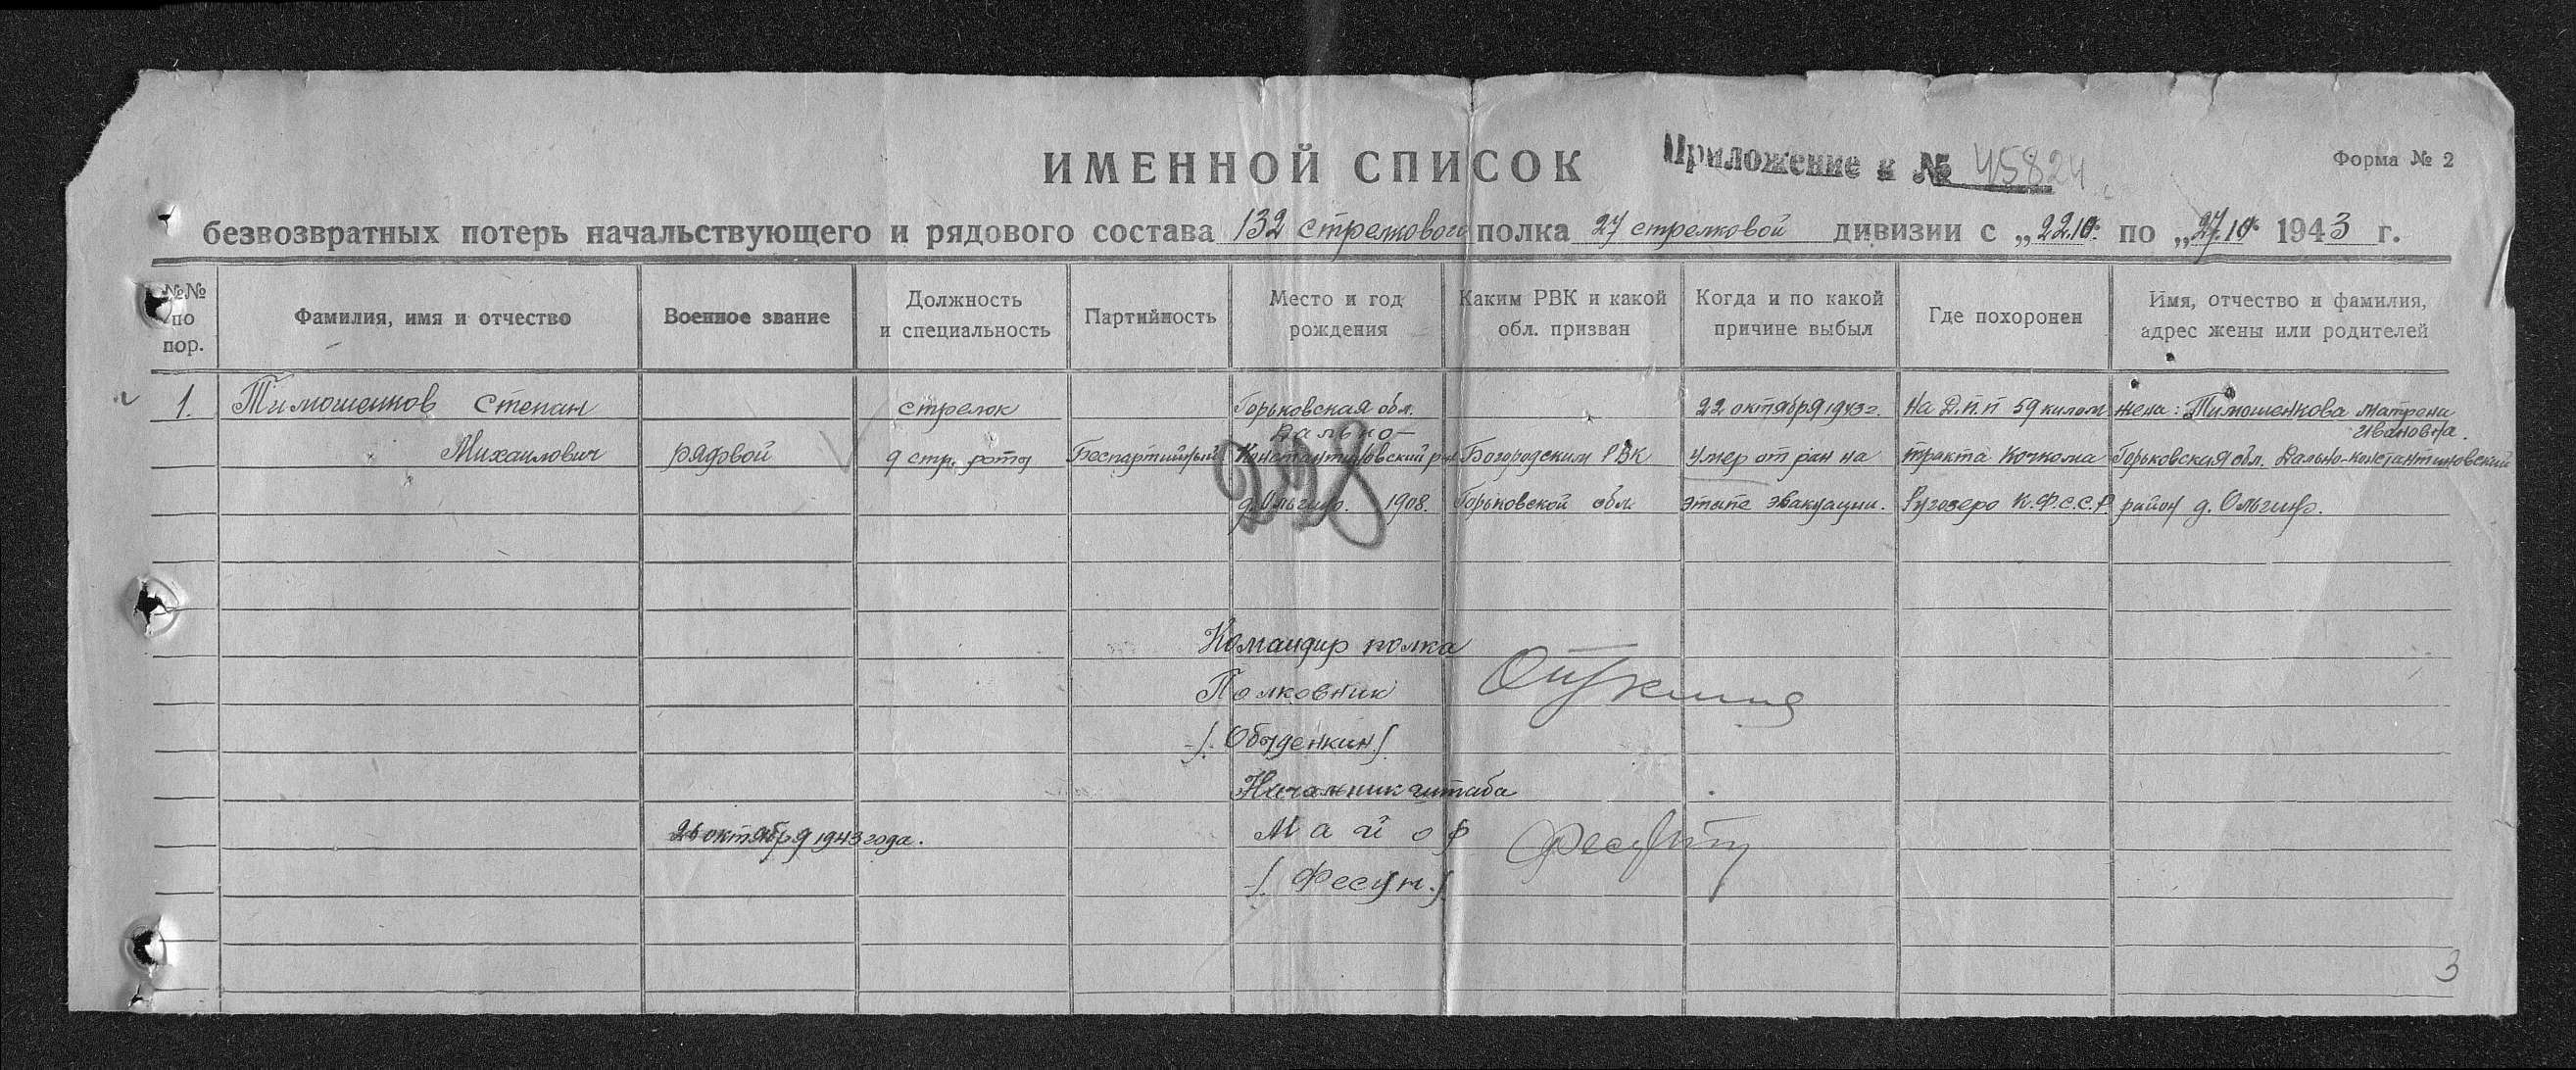 ИМЕННОЙ СПИСОК
Приложение к № 45824
Форма № 2
безвозвратных потерь начальствующего и рядового состава 132 стрелкового полка 27 стрелковой дивизии с „22.10. по „27.10. 1943 г.
№№ по пор.
Фамилия, имя и отчество
Военное звание
Должность и специальность
Партийность
Место и год рождения
Каким РВК и какой обл. призван
Когда и по какой причине выбыл
Где похоронен
Имя, отчество и фамилия, адрес жены или родителей
1. Тимошенков Степан стрелок Горьковская обл. 22 октября 1943г. На Д.п.п 59 килом. жена: Тимошенкова Матрена
Дально- Ивановна.
Михаилович рядовой 9 стр. роты Беспартийный Константиновский р-н Богородским РВК умер от ран на тракта Кочкома Горьковская обл. Дально-константиновский
д. Ольгино. 1908. Горьковской обл этапе эвакуации. Ругозеро К.Ф.С.С.Р. район д. Ольгино.
228
Командир полка
Полковник
/. Обыденкин /.
Начальник штаба
26 октября 1943 года. Майор
/. Фесун. /.
3